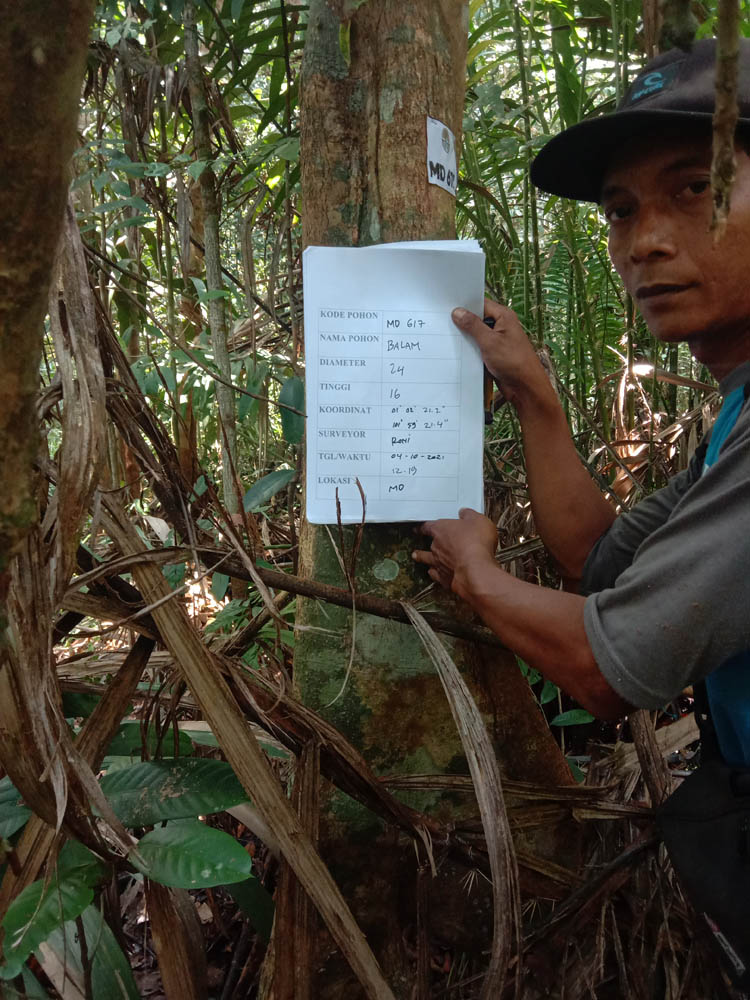 MD 617
KODE POHON MD 617
NAMA POHON BALAM
DIAMETER 24
TINGGI 16
KOORDINAT 01° 02' 21.2"
101° 59' 21.4"
SURVEYOR Roni
TGL/WAKTU 04-10-2021
12.19
LOKASI MD